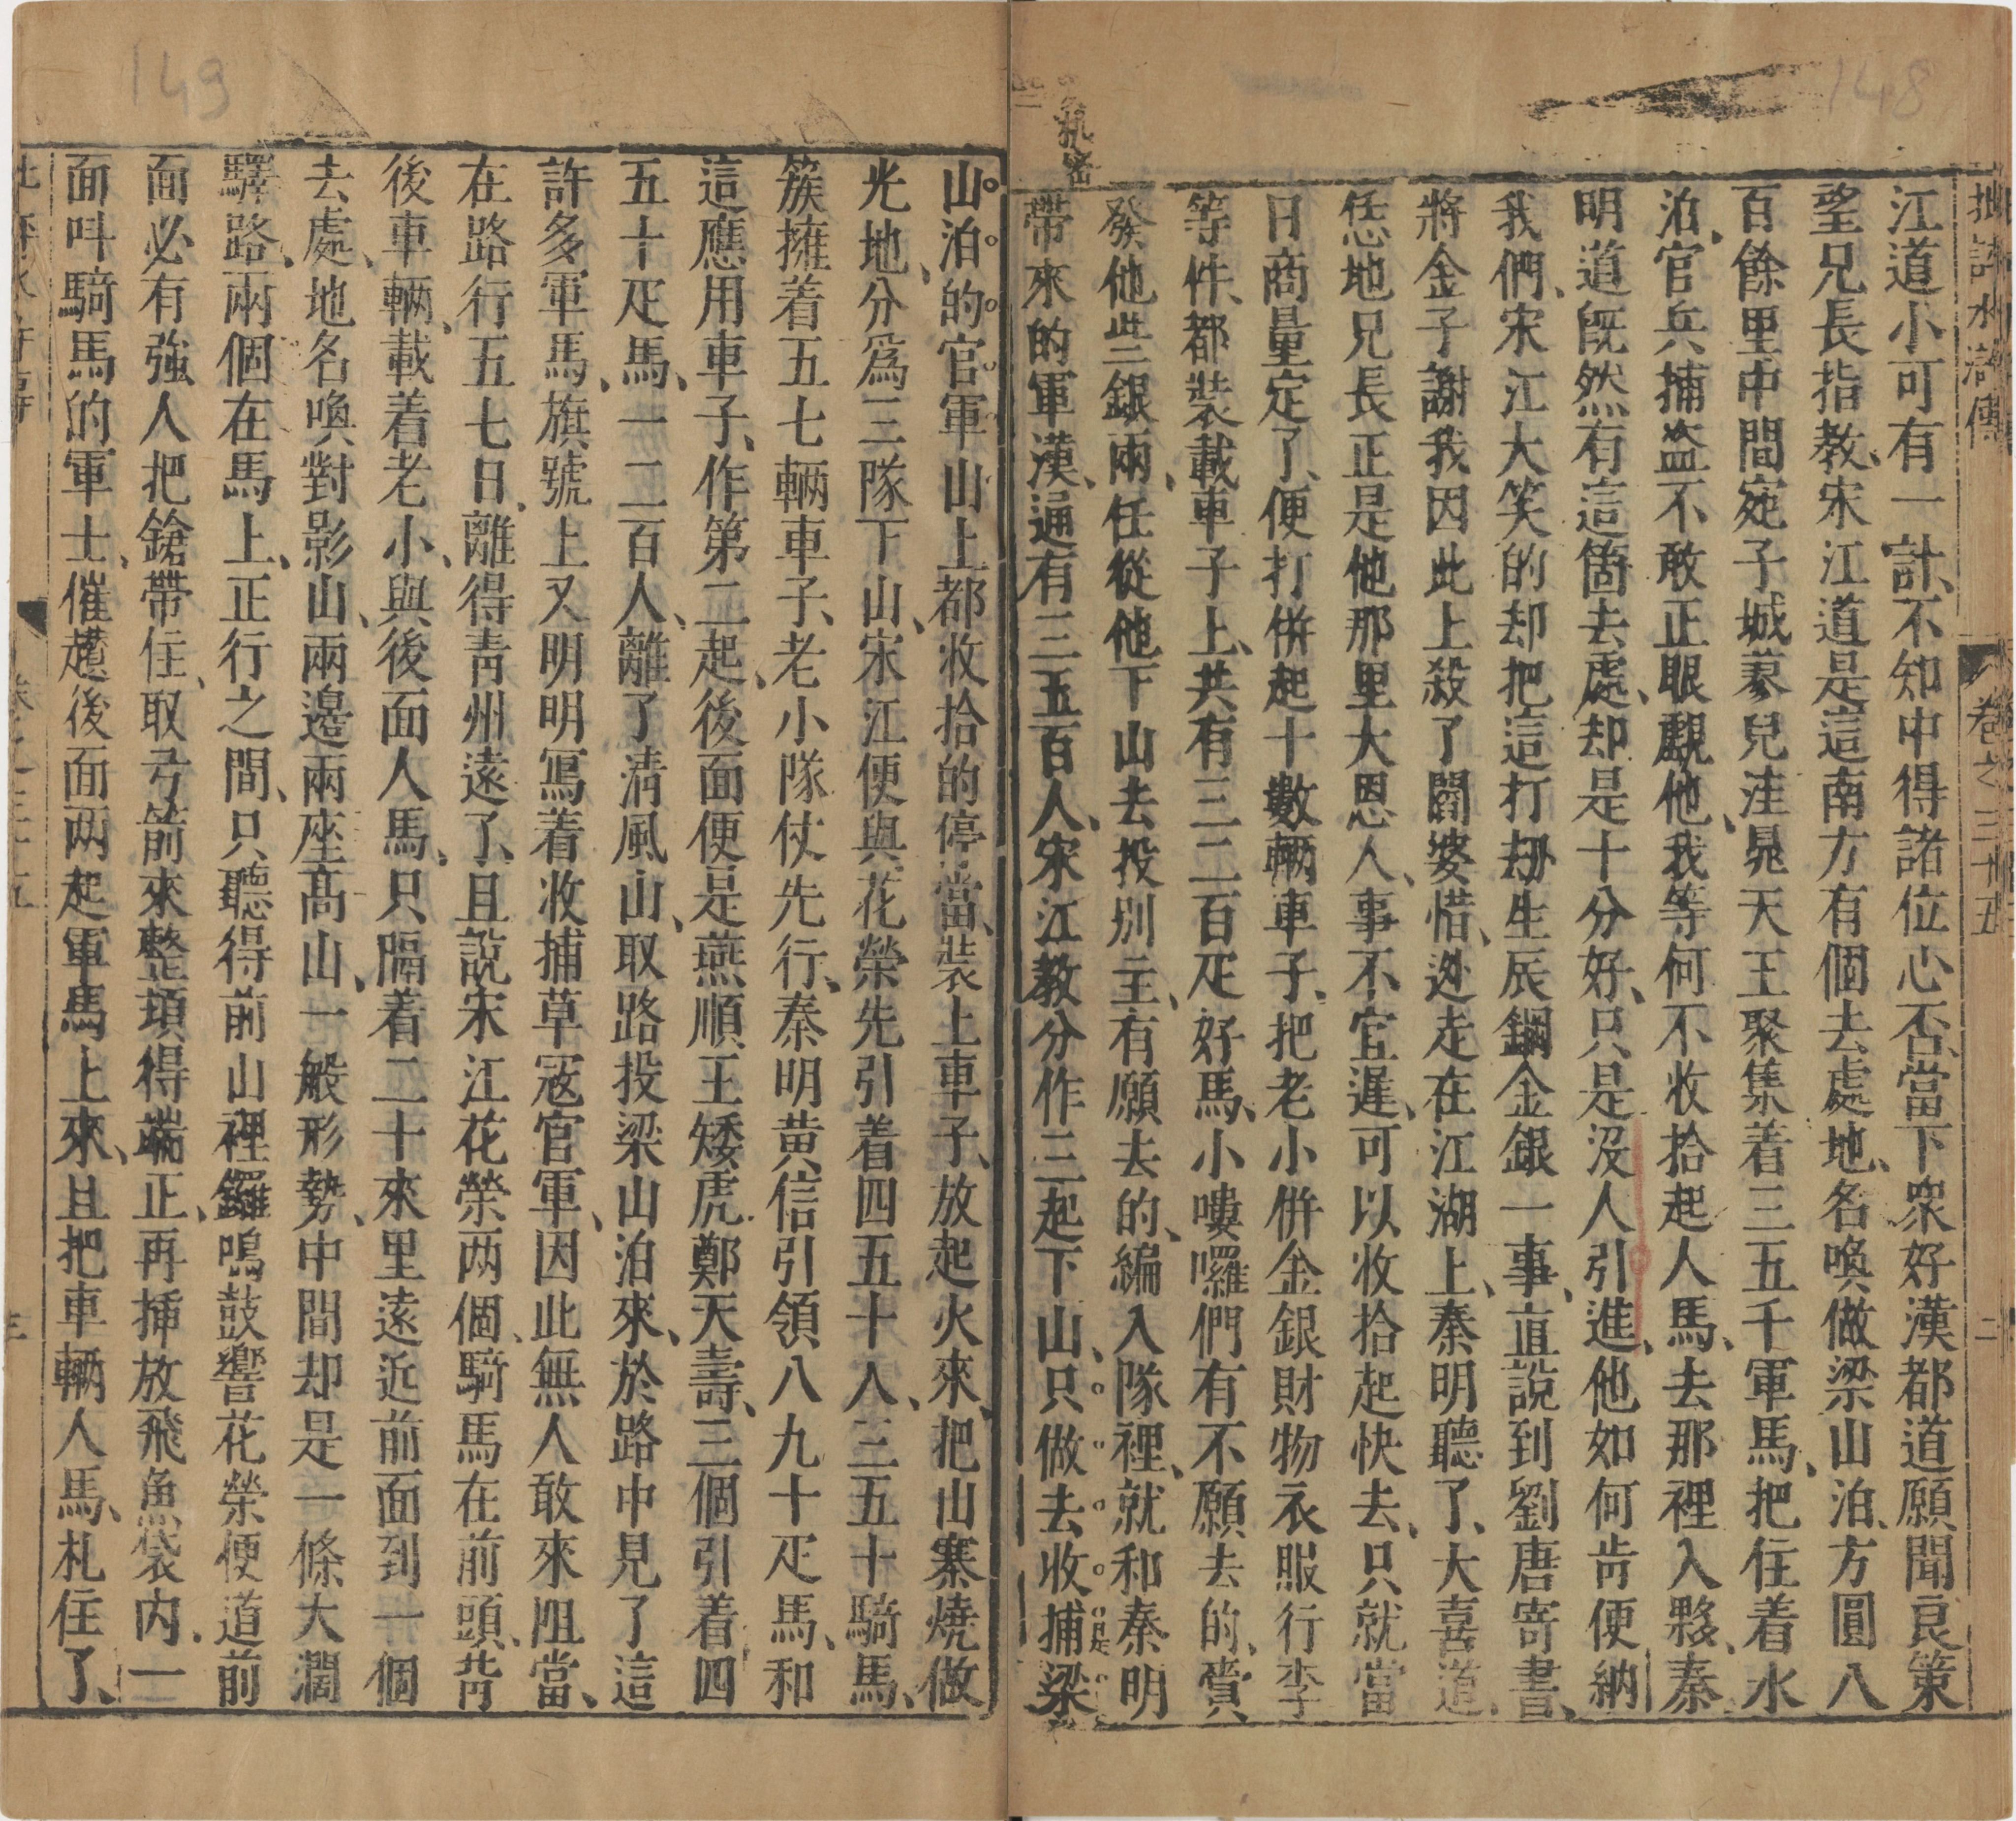 148
批評水滸傳
卷之三十五
二
江道小可有一計、不知中得諸位心否、當下衆好漢都道願聞良策
望兄長指教、宋江道是這南方有個去處地、名喚做梁山泊、方圓八
百餘里中間宛子城蓼兒洼晁天王聚集着三五千軍馬、把住着水
泊、官兵捕盜不敢正眼覷他、我等何不收拾起人馬、去那裡入夥、秦
明道旣然有這箇去處、却是十分好、只是沒人引進、他如何肯便納
我們、宋江大笑的却把這打刼生辰綱金銀一事、直說到劉唐寄書、
將金子謝我因此上殺了閻婆惜、迯走在江湖上、秦明聽了、大喜道、
恁地兄長正是他那里大恩人、事不宜遲、可以收拾起快去、只就當
日商量定了、便打併起十數輛車子、把老小併金銀財物衣服行李
等件、都裝載車子上、共有三二百疋好馬、小嘍囉們有不願去的、賫
發他些銀兩、任從他下山去投別主、有願去的、編入隊裡、就和秦明
帶來的軍漢、通有三五百人、宋江教分作三起下山、只做去收捕梁
机密
149
山泊的官軍山上都收拾的停當、裝上車子、放起火來、把山寨燒做
光地、分爲三隊下山、宋江便與花榮先引着四五十人、三五十騎馬、
簇擁着五七輛車子、老小隊仗先行、秦明黄信引領八九十疋馬、和
這應用車子、作第二起、後面便是燕順王矮虎鄭天壽、三個引着四
五十疋馬、一二百人、離了淸風山、取路投梁山泊來、於路中見了這
許多軍馬、旗號上又明明寫着收捕草寇官軍、因此無人敢來阻當、
在路行五七日、離得青州遠了、且說宋江花榮两個、騎馬在前頭、背
後車輛、載着老小、與後面人馬、只隔着二十來里遠近前面到一個
去處、地名喚對影山、兩邊兩座高山、一般形勢、中間却是一條大濶
驛路、兩個在馬上、正行之間、只聽得前山裡鑼鳴鼓響花榮便道前
面必有強人把鎗帶住、取弓箭來整頓得端正、再揷放飛魚袋内、一
面呌騎馬的軍士、催趲後面两起軍馬上來、且把車輛人馬、札住了、
三